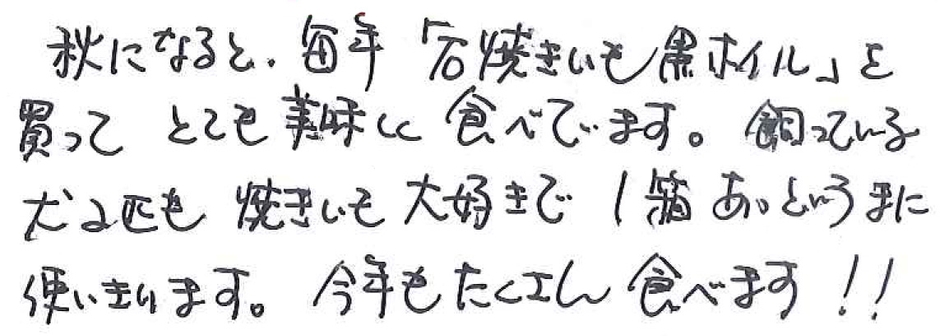 秋になると、毎年「石焼きいも黒ホイル」を
買って とても美味しく食べてます。飼っている
犬2匹も 焼きいも大好きで 1箱 あっというまに
使いきります。今年もたくさん食べます!!